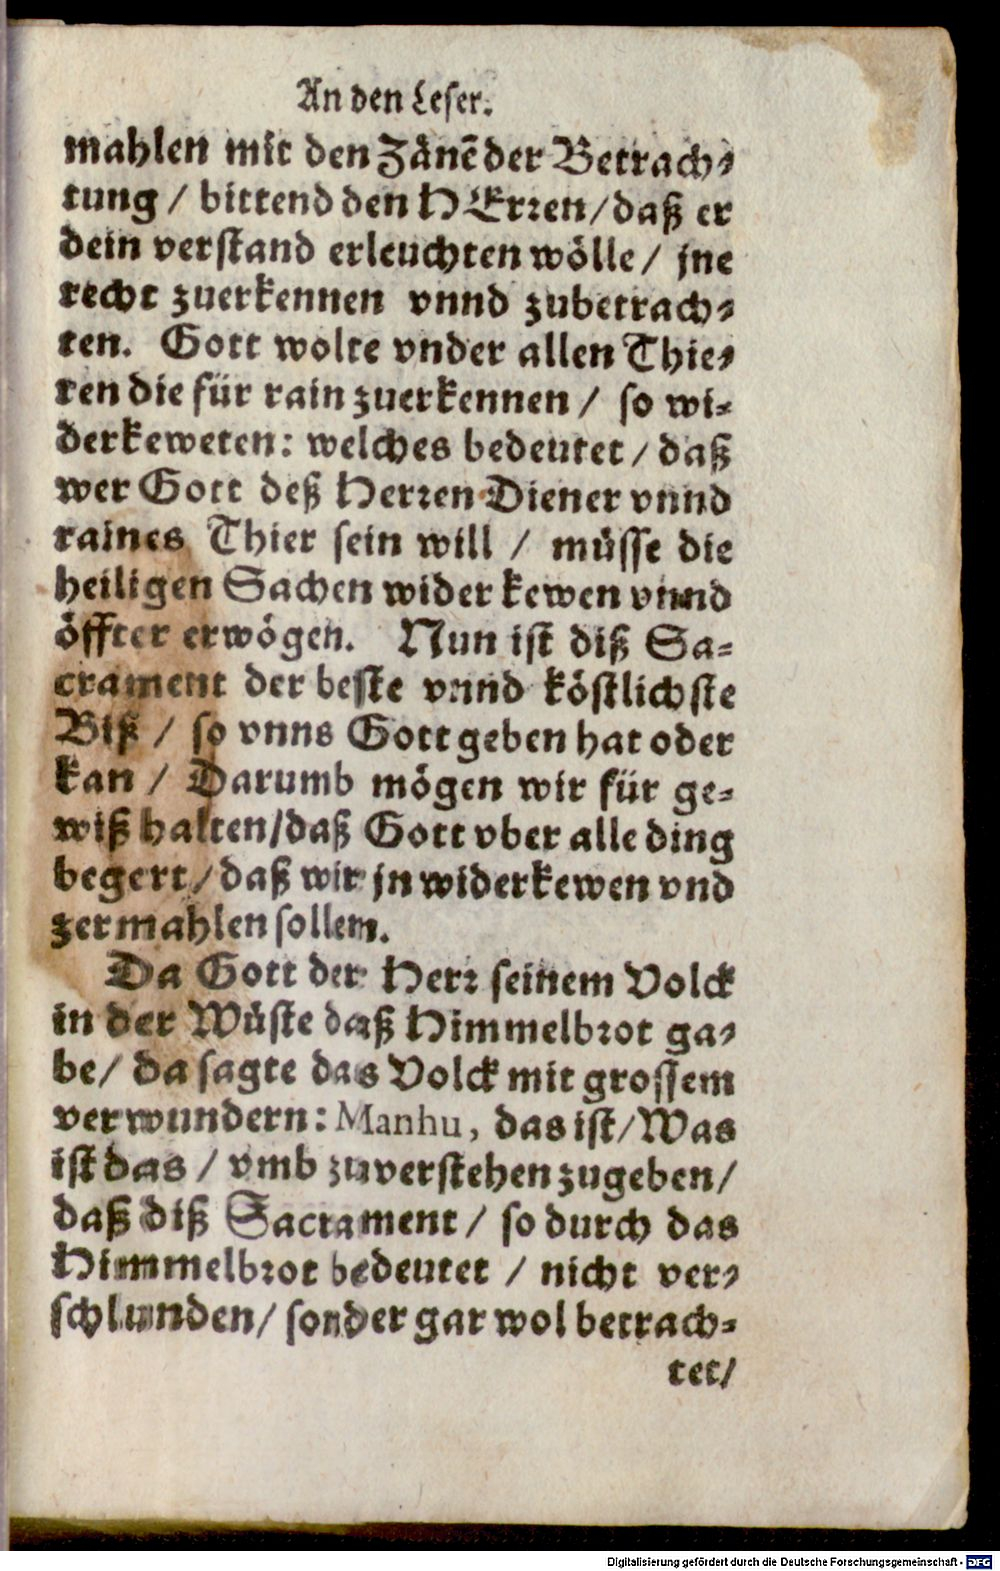 An den Leser.
mahlen mit den Zänē der Betrach⸗
tung / bittend den HErren / daß er
dein verstand erleuchten wölle / jne
recht zuerkennen vnnd zubetrach⸗
ten. Gott wolte vnder allen Thie⸗
ren die für rain zuerkennen / so wi⸗
derkeweten: welches bedeutet / daß
wer Gott deß Herren Diener vnnd
raines Thier sein will / müsse die
heiligen Sachen wider kewen vnnd
öffter erwögen. Nun ist diß Sa⸗
crament der beste vnnd köstlichste
Biß / so vnns Gott geben hat oder
kan / Darumb mögen wir für ge⸗
wiß halten / daß Gott vber alle ding
begert / daß wir jn widerkewen vnd
zermahlen sollem.
Da Gott der Herr seinem Volck
in der Wüste daß Himmelbrot ga⸗
be / da sagte das Volck mit grossem
verwundern: Manhu, das ist / Was
ist das / vmb zuverstehen zugeben /
daß diß Sacrament / so durch das
Himmelbrot bedeutet / nicht ver⸗
schlunden / sonder gar wol betrach⸗
tet /
Digitalisierung gefördert durch die Deutsche Forschungsgemeinschaft - DFG